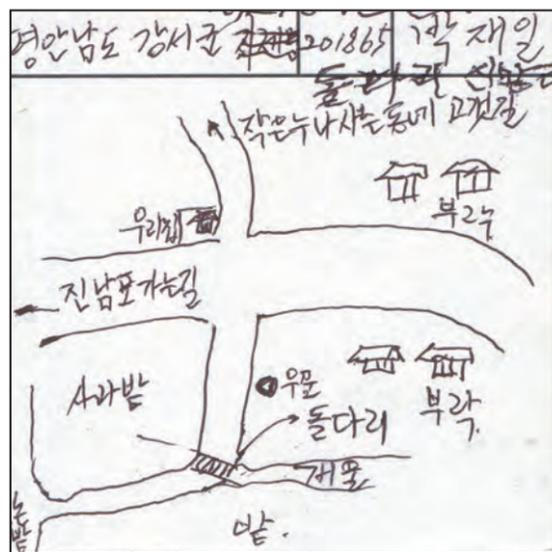 평안남도 강서군 201865 박재일
작은누나사는동네 고갯길
우리집
부락
진남포가는길
사과밭
우물
부락
돌다리
개울
논
밭
밭.